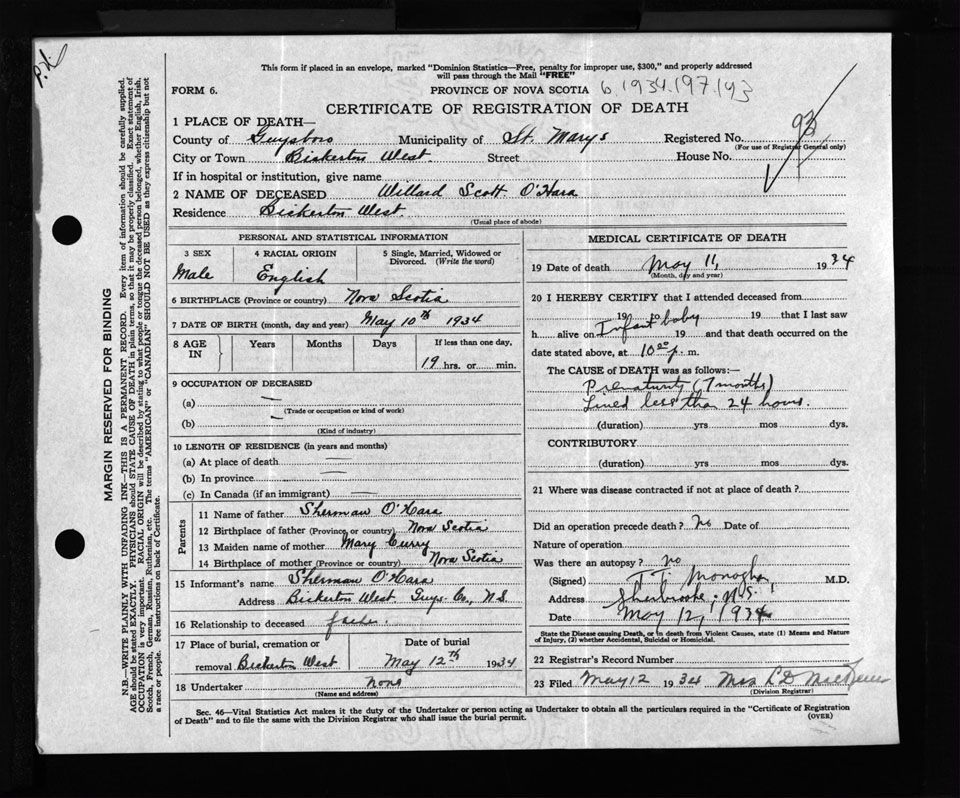 P.H.
This form if placed in an envelope, marked "Dominion Statistics—Free, penalty for improper use, $300," and properly addressed
will pass through the Mail "FREE"
FORM 6.
PROVINCE OF NOVA SCOTIA 6.1934.197.193
CERTIFICATE OF REGISTRATION OF DEATH
1 PLACE OF DEATH—
County of Guysboro Municipality of St. Marys Registered No. 93
(For use of Registrar General only)
City or Town Bickerton West. Street House No.
If in hospital or institution, give name
2 NAME OF DECEASED Willard Scott O'Hara
Residence Bickerton West.
(Usual place of abode)
PERSONAL AND STATISTICAL INFORMATION
3 SEX
Male
4 RACIAL ORIGIN
English
5 Single, Married, Widowed or
Divorced. (Write the word)
6 BIRTHPLACE (Province or country) Nova Scotia
7 DATE OF BIRTH (month, day and year) May 10th 1934
8 AGE
IN
Years
Months
Days
If less than one day,
19 hrs. or min.
9 OCCUPATION OF DECEASED
(a) —
(Trade or occupation or kind of work)
(b) —
(Kind of industry)
10 LENGTH OF RESIDENCE (in years and months)
(a) At place of death —
(b) In province —
(c) In Canada (if an immigrant) —
Parents
11 Name of father Sherman O'Hara
12 Birthplace of father (Province or country) Nova Scotia
13 Maiden name of mother Mary Curry
14 Birthplace of mother (Province or country) Nova Scotia
15 Informant's name Sherman O'Hara
Address Bickerton West. Guys. Co., N.S.
16 Relationship to deceased father.
17 Place of burial, cremation or
removal Bickerton West
Date of burial
May 12th 1934
18 Undertaker none
(Name and address)
MEDICAL CERTIFICATE OF DEATH
19 Date of death May 11, 1934
(Month, day and year)
20 I HEREBY CERTIFY that I attended deceased from
19 to 19 that I last saw
h alive on Infant baby 19 and that death occurred on
date stated above, at 10 20 p. m.
The CAUSE of DEATH was as follows:—
Prematurity (7 months)
Lived less than 24 hours.
(duration) yrs mos dys.
CONTRIBUTORY
(duration) yrs mos dys.
21 Where was disease contracted if not at place of death?
Did an operation precede death? No Date of
Nature of operation
Was there an autopsy? No
(Signed) M.D.
Address Sherbrooke, N.S.
Date May 12, 1934
State the Disease causing Death, or in death from Violent Causes, state (1) Means and Nature
of Injury, (2) whether Accidental, Suicidal or Homicidal.
22 Registrar's Record Number
23 Filed May 12 1934 Mrs
(Division Registrar)
Sec. 46—Vital Statistics Act makes it the duty of the Undertaker or person acting as Undertaker to obtain all the particulars required in the "Certificate of Registration
of Death" and to file the same with the Division Registrar who shall issue the burial permit.
(OVER)
MARGIN RESERVED FOR BINDING
N.B.—WRITE PLAINLY WITH UNFADING INK—THIS IS A PERMANENT RECORD. Every item of information should be carefully supplied.
AGE should be stated EXACTLY. PHYSICIANS should STATE CAUSE OF DEATH in plain terms, so that it may be properly classified. Exact statement of
OCCUPATION is very important. RACIAL ORIGIN will be described by stating to what people or tongue the deceased person belonged, whether English, Irish,
Scotch, French, German, Russian, Ruthenian, etc. The terms "AMERICAN" or "CANADIAN" SHOULD NOT BE USED as they express citizenship but not
a race or people. See instructions on back of Certificate.